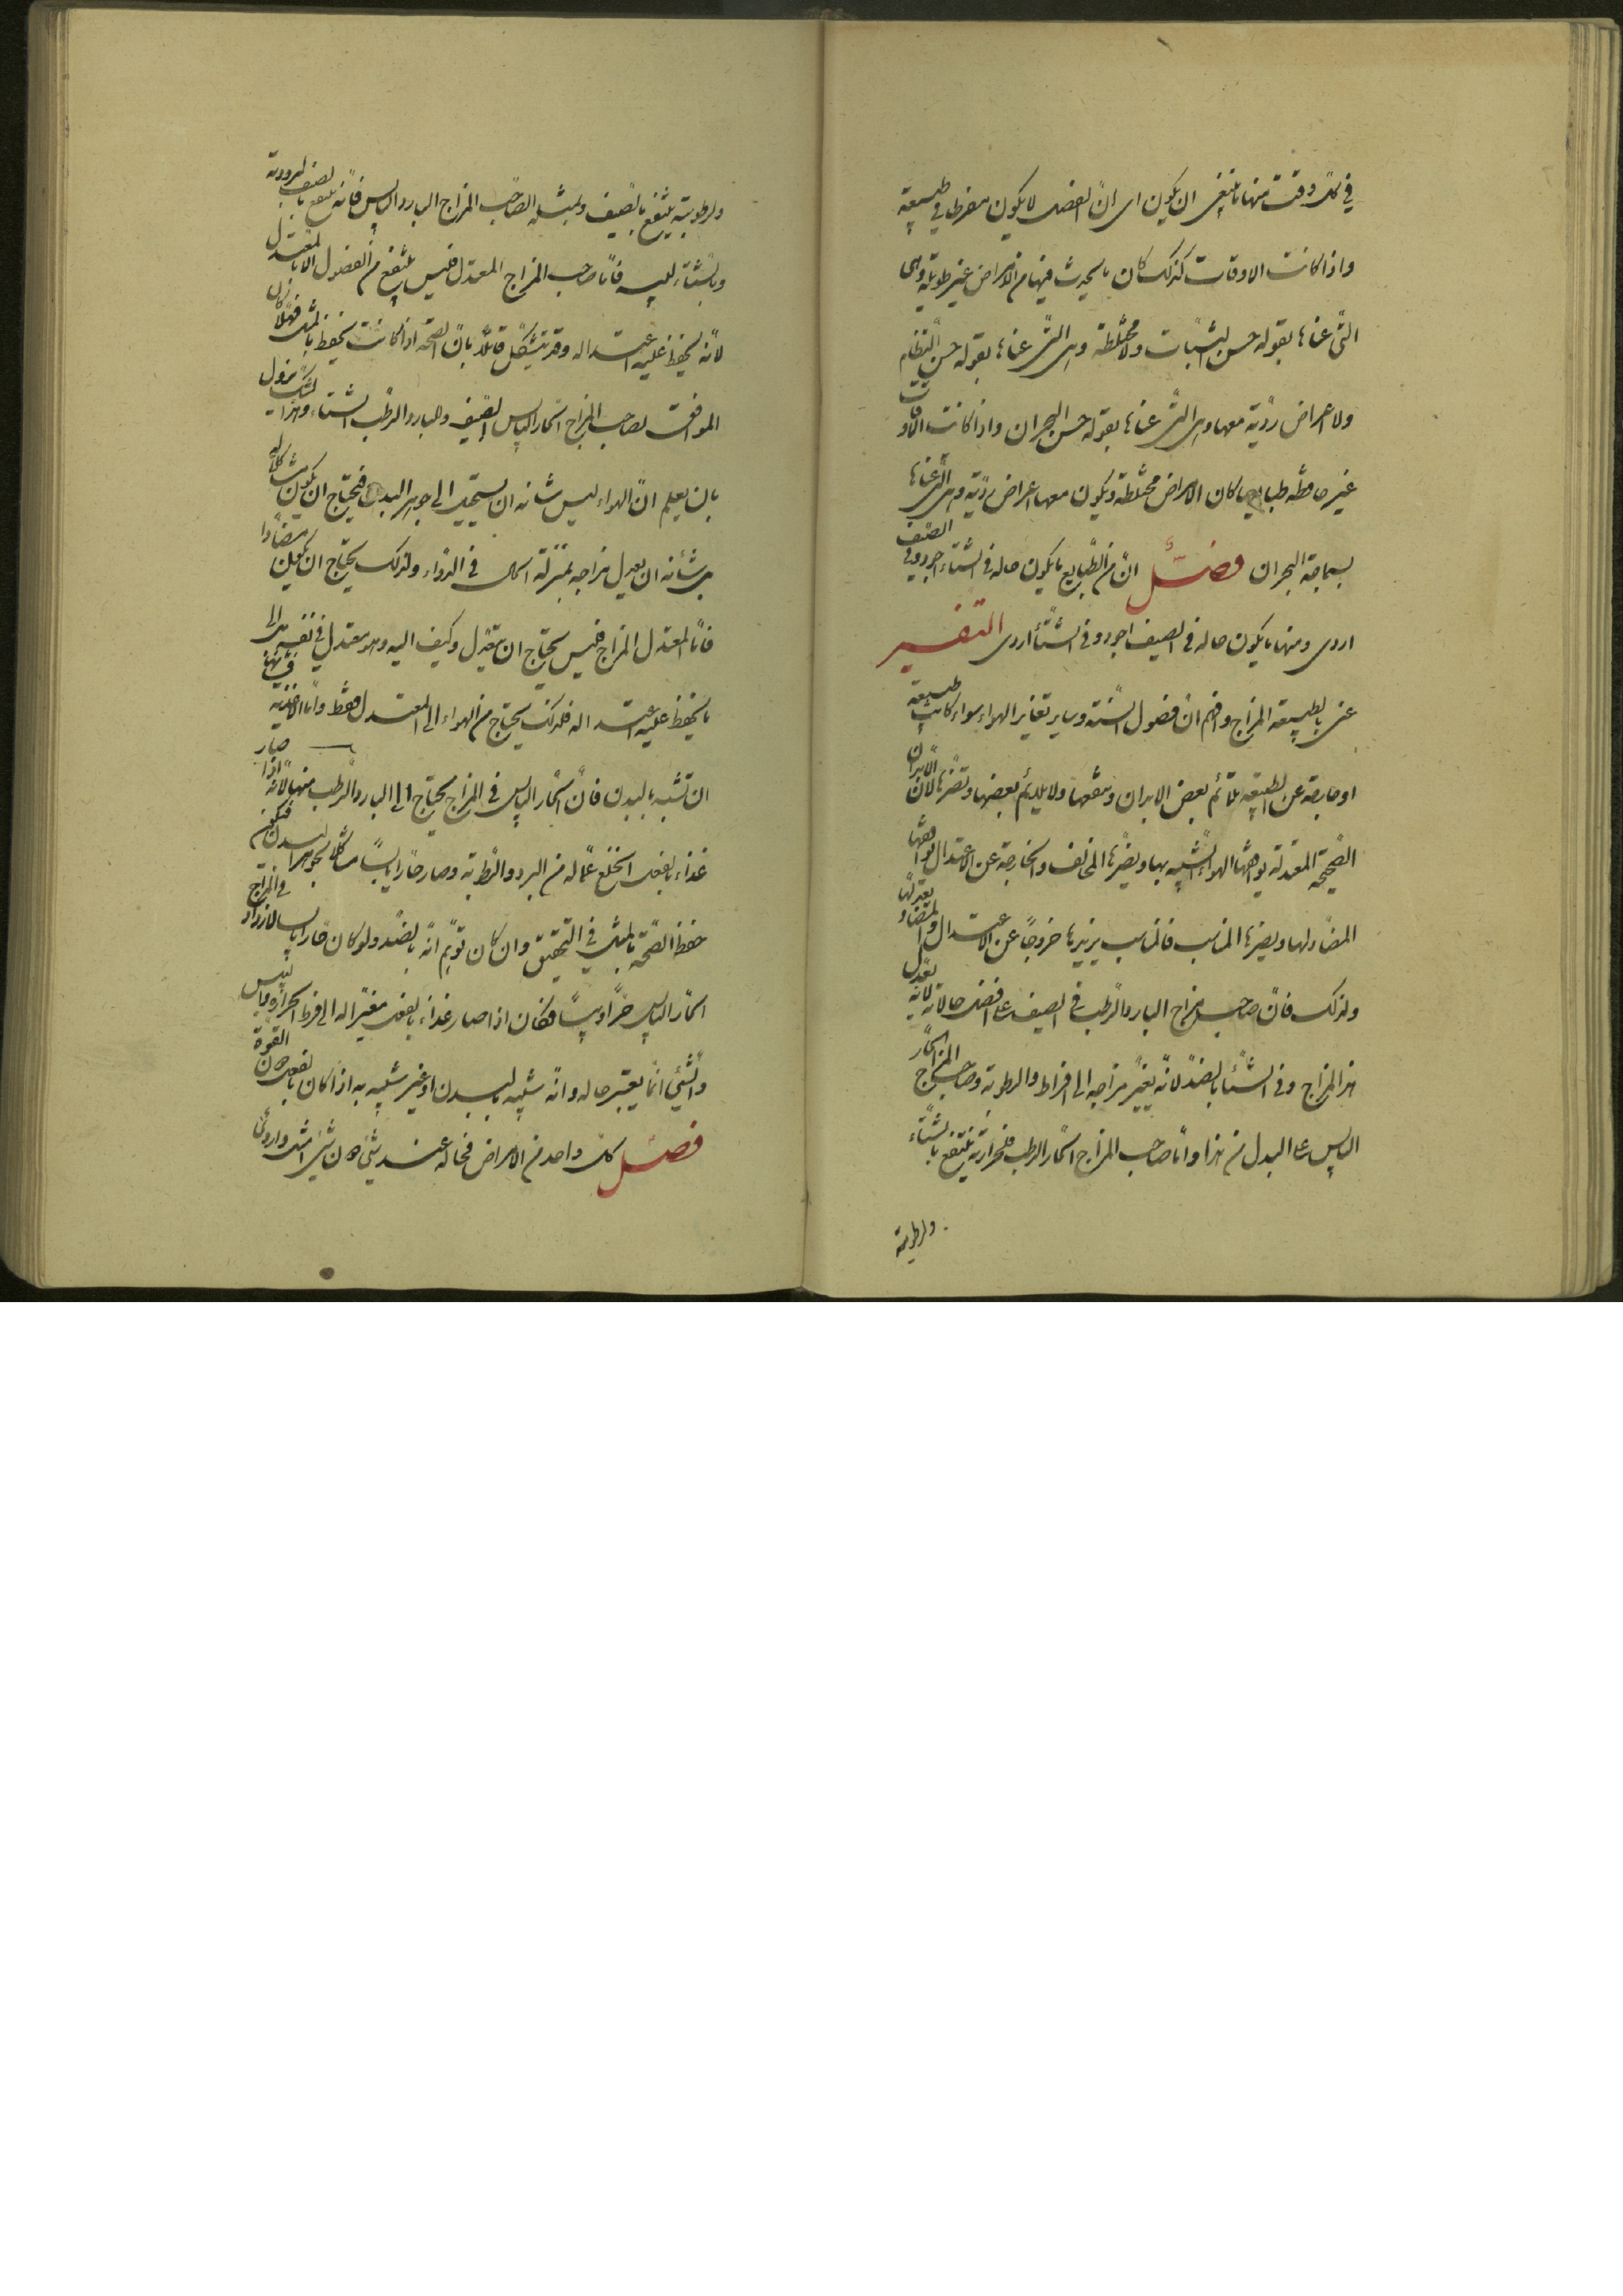 في كل وقت منها ما ينبغي ان يكون اى ان الفصل لا يكون مفرطا في طبيعته
واذا كانت الاوقات كذلك كان ما يحدث فيها من الامراض غير طويلة وهى
التى عناها بقوله حسن الثبات ولا مختلطة وهى التى عناها بقوله حسن النظام
ولا اعراض ردية معها وهى التى عناها بقوله حسن البحران واذا كانت الاوقات
غير حافظه طبايعها كان الامراض مختلطة ويكون معها اعراض ردية وهى التى عناها
بسماجة البحران فصل ان من الطبايع ما يكون حاله في الشتاء اجود وفي الصيف
اردى ومنها ما يكون حاله في الصيف اجود وفي الشتاء اردى التفسير
عنى بالطبيعة المزاج وافهم ان فصول السنة وساير تغاير الهواء سواء كانت طبيعته
او خارجة عن الطبيعة تلائم بعض الابدان وينفعها ولا يلائم بعضها وتضرها لان الابدان
الصحيحة المعتدلة يوافقها الهواء الشبيه بها ويضرها المخالف والخارجة عن الاعتدال يوافقها
المضاد لها ويضرها المناسب فالمناسب يزيدها خروجا عن الاعتدال والمضاد يعدلها
ولذلك فان صاحب المزاج البارد الرطب في الصيف على افضل حالاته لانه يعدل
هذا المزاج وفي الشتاء بالضد لانه يغير مزاجه الى افراط والرطوبة وصاحب المزاج الحار
اليابس على البدل من هذا واما صاحب المزاج الحار الرطب فلحرارته ينتفع بالشتاء
ولرطوبته
ولرطوبته ينتفع بالصيف وبمثله لصاحب المزاج البارد اليابس فانه ينتفع بالصيف لبرودته
وبالشتاء ليبسه فاما صاحب المزاج المعتدل فليس ينتفع من الفصول الا بالمعتدل
لانه يحفظ عليه اعتداله وقد يتشكل قائلا بان الصحة اذا كانت تحفظ بالمثل فهلا كان
الموافقت لصاحب المزاج الحار اليابس الصيف وللبارد الرطب الشتاء وهذا الشك يزول
بان يعلم ان الهواء ليس شانه ان يستحيل الى جوهر البدن فيحتاج ان يكون مشاكلا له
بل شأنه ان يعدل مزاجه بمنزلة الحال في الدواء ولذلك يحتاج ان يكون مضادا
فاما المعتدل المزاج فليس يحتاج ان يتعدل وكيف اليه وهو معتدل في نفسه بل الى
ما يحفظ عليه اعتداله فلذلك يحتاج من الهواء الى المعتدل فقط واما الاغذية فمن شأنها
ان تشبه بالبدن فان الحار اليابس في المزاج يحتاج الى البارد الرطب منها لانه اذا صار
غذاء بالفعل انخلع عما له من البرد والرطوبة وصار حارا يابسا مشاكلا لجوهر البدن فيكون
حفظ الصحة بالمثل في التحقيق وان كان توهم انه بالضد ولو كان حارا يابسا لازداد في المزاج
الحار اليابس حرا ويبسا فكان اذا صار غذاء بالفعل مغيرا له الى فرط الحرارة واليبس
والشئ انما يعتبر حاله وانه شبيه بالبدن او غير شبيه به اذا كان بالفعل دون القوة
فصل كل واحد من الامراض فحاله عند شئ دون شئ امثل واردئ